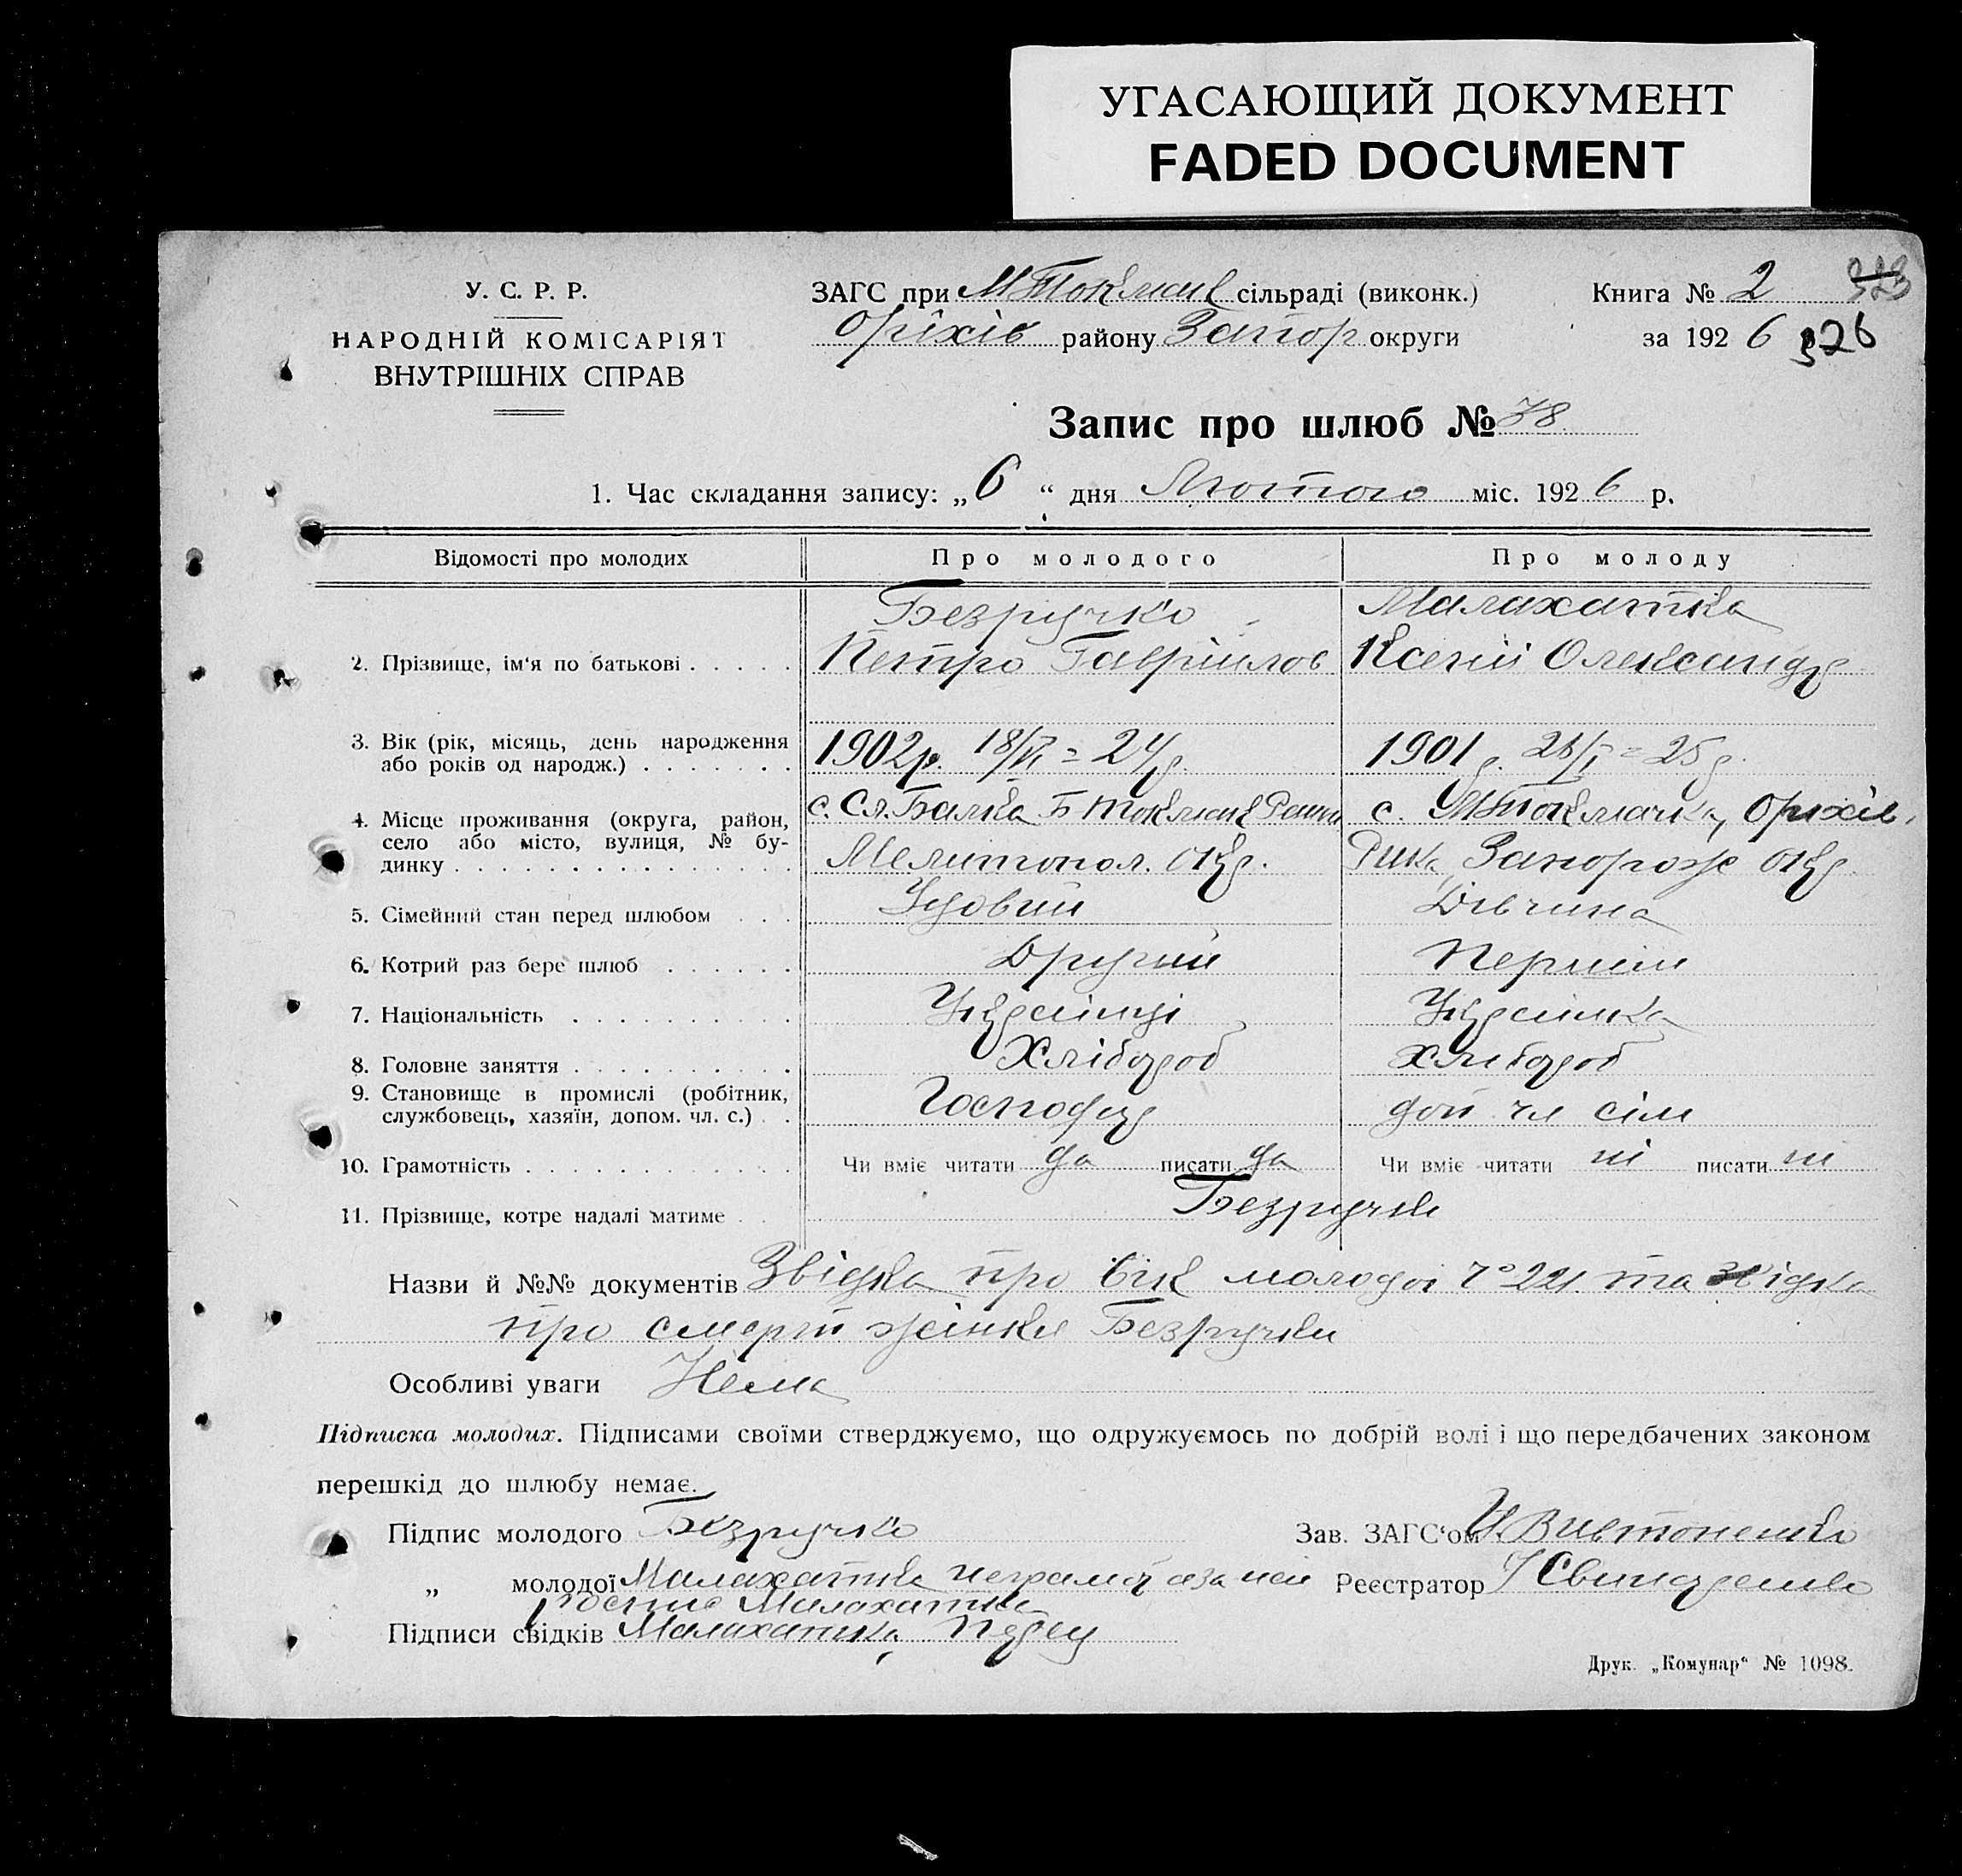 УГАСАЮЩИЙ ДОКУМЕНТ
FADED DOCUMENT
У. С. Р. Р.
НАРОДНІЙ КОМІСАРІЯТ
ВНУТРІШНІХ СПРАВ
ЗАГС при М Токмац сільраді (виконк.)
Оріхів району Запор округи
Книга № 2
за 1926 326
Запис про шлюб № 78
1. Час складання запису: „6“ дня Лютого міс. 1926 р.
Відомості про молодих Про молодого Про молоду
Безручко Малахатка
2. Прізвище, ім'я по батькові Петро Гавриілов Ксенія Олександр
3. Вік (рік, місяць, день народження
або років од народж.) 1902р. 18/VI = 24р. 1901р. 28/I = 25р.
4. Місце проживання (округа, район,
село або місто, вулиця, № бу-
динку
с. Сл. Балка Б Токмац с. М Токмачка, Оріхів.
Мелитопол. окр. Запорож окр.
5. Сімейний стан перед шлюбом Удовий Дівчина
6. Котрий раз бере шлюб Другий Перший
7. Національність Українці Українка
8. Головне заняття Хлібороб Хлібороб
9. Становище в промислі (робітник,
службовець, хазяїн, допом. чл. с.) Господар доп чл сім
10. Грамотність Чи вміє читати да писати да Чи вміє читати ні писати ні
11. Прізвище, котре надалі матиме Безручки
Назви й №№ документів Звідка про вік молодої 221. та звідка
про смерть жінки Безручки
Особливі уваги Нема
Підписка молодих. Підписами своїми стверджуємо, що одружуємось по добрій волі і що передбачених законом
перешкід до шлюбу немає.
Підпис молодого Безручко Зав. ЗАГС'ом
„ молодої Малахатка неграмот за неї Реєстратор
Малахатка
Підписи свідків Малахатка
Друк. „Комунар“ № 1098.